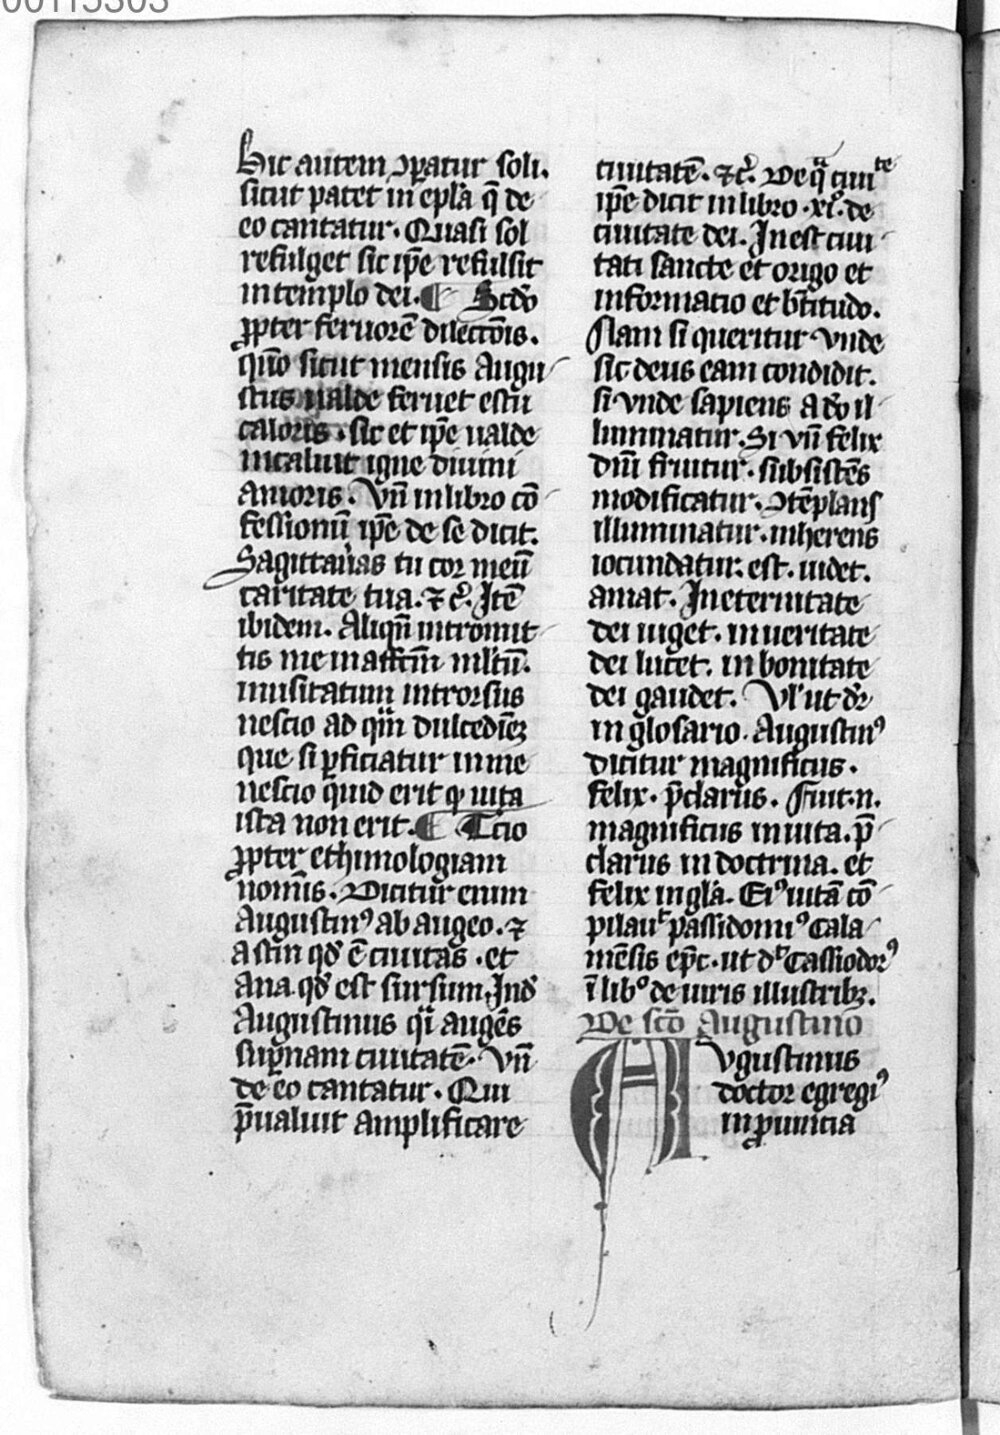 00115303
Hic autem ꝯparatur soli.
sicut patet in epl̄a q̄ de
eo cantatur. Quasi sol
refulget sic ip̄e refulsit
in templo dei. ¶ Scd̄o
ꝓpter feruorē dilectōis.
qm̄o sicut mensis Augu
stus ualde feruet estu
caloris. sic et ip̄e ualde
incaluit igne diuini
amoris. Vn̄ in libro cō
fessionū ip̄e de se dicit.
Sagittaūas tu cor meū
caritate tua. ⁊ c̄. Itē
ibidem. Aliqn̄ intromit
tis me in affcm̄ ml̄tū.
inusitatum introrsus
nescio ad qm̄ dulcediēꝫ
que si ꝑficiatur in me
nescio quid erit ꝙ uita
ista non erit. ¶ Tcio
ꝓpter ethimologiam
nom̄is. Dicitur enim
Augustinꝰ ab augeo. ⁊
astin qd̄ ē ciuitas. et
Ana. qd̄ est sursum. Ind̄
Augustinus qi augēs
suꝑnam ciuitatē. Vn̄
de eo cantatur. Qui
p̄ualuit amplificare
ciuitatē. ⁊c̄. De qa ciuite
ip̄e dicit in libro .xi. de
ciuitate dei. Inest ciui
tati sancte et origo et
informatio et bt̄itudo.
Nam si queritur vnde
sit deus eam condidit.
si vnde sapiens a do il
luminatur. Si vn̄ felix
dm̄ fruitur. subsistēs
modificatur. ꝯtēplans
illuminatur. inherens
iocundatur. est. uidet.
amat. In eternitate
dei uiget. in ueritate
dei lucet. in bonitate
dei gaudet. Vl' ut dr̄
in glosario. Augustinꝰ
dicitur magnificus.
felix. p̄clarus. Fuit .n.
magnificus in uita. p̄
clarus in doctrina. et
felix in gl̄a. Eiꝰ uitā cō
pilauit passidoniꝰ Cala
mēsis ep̄c. ut dt Cassiodorꝰ
ī libo de uiris illustribꝫ.
De scō Augustino
Avgustinus
doctor egregiꝰ
in ꝓuincia